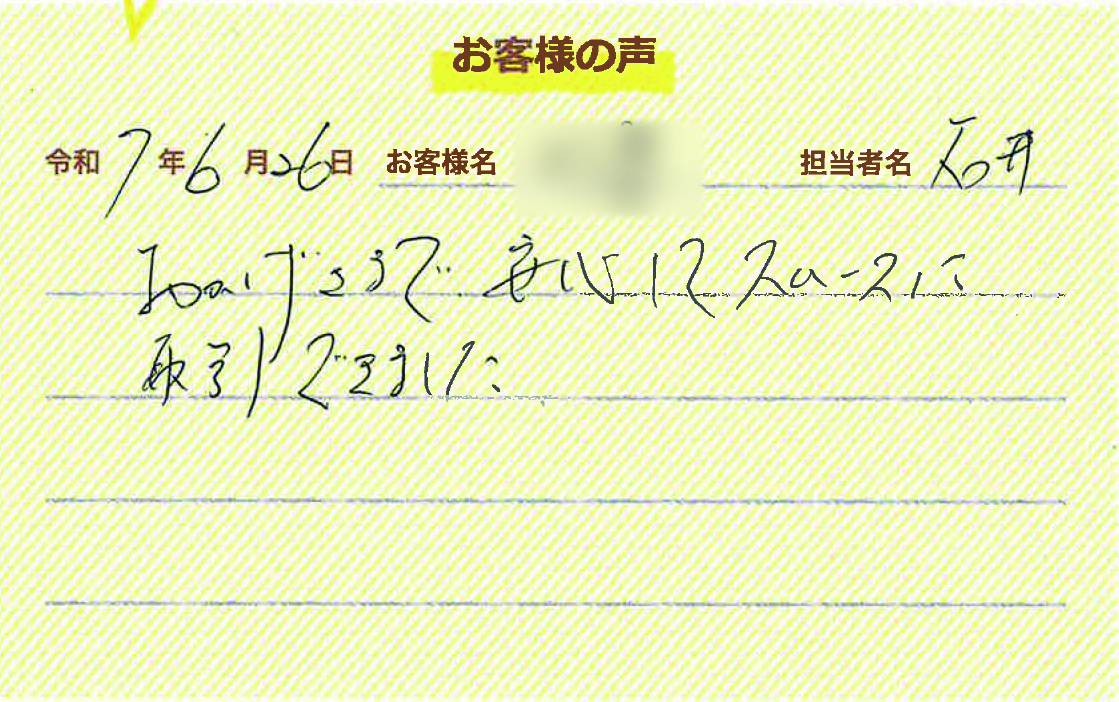 お客様の声
令和7年6月26日 お客様名 担当者名 石井
おかげさまで 安心して スムースに
取引できました